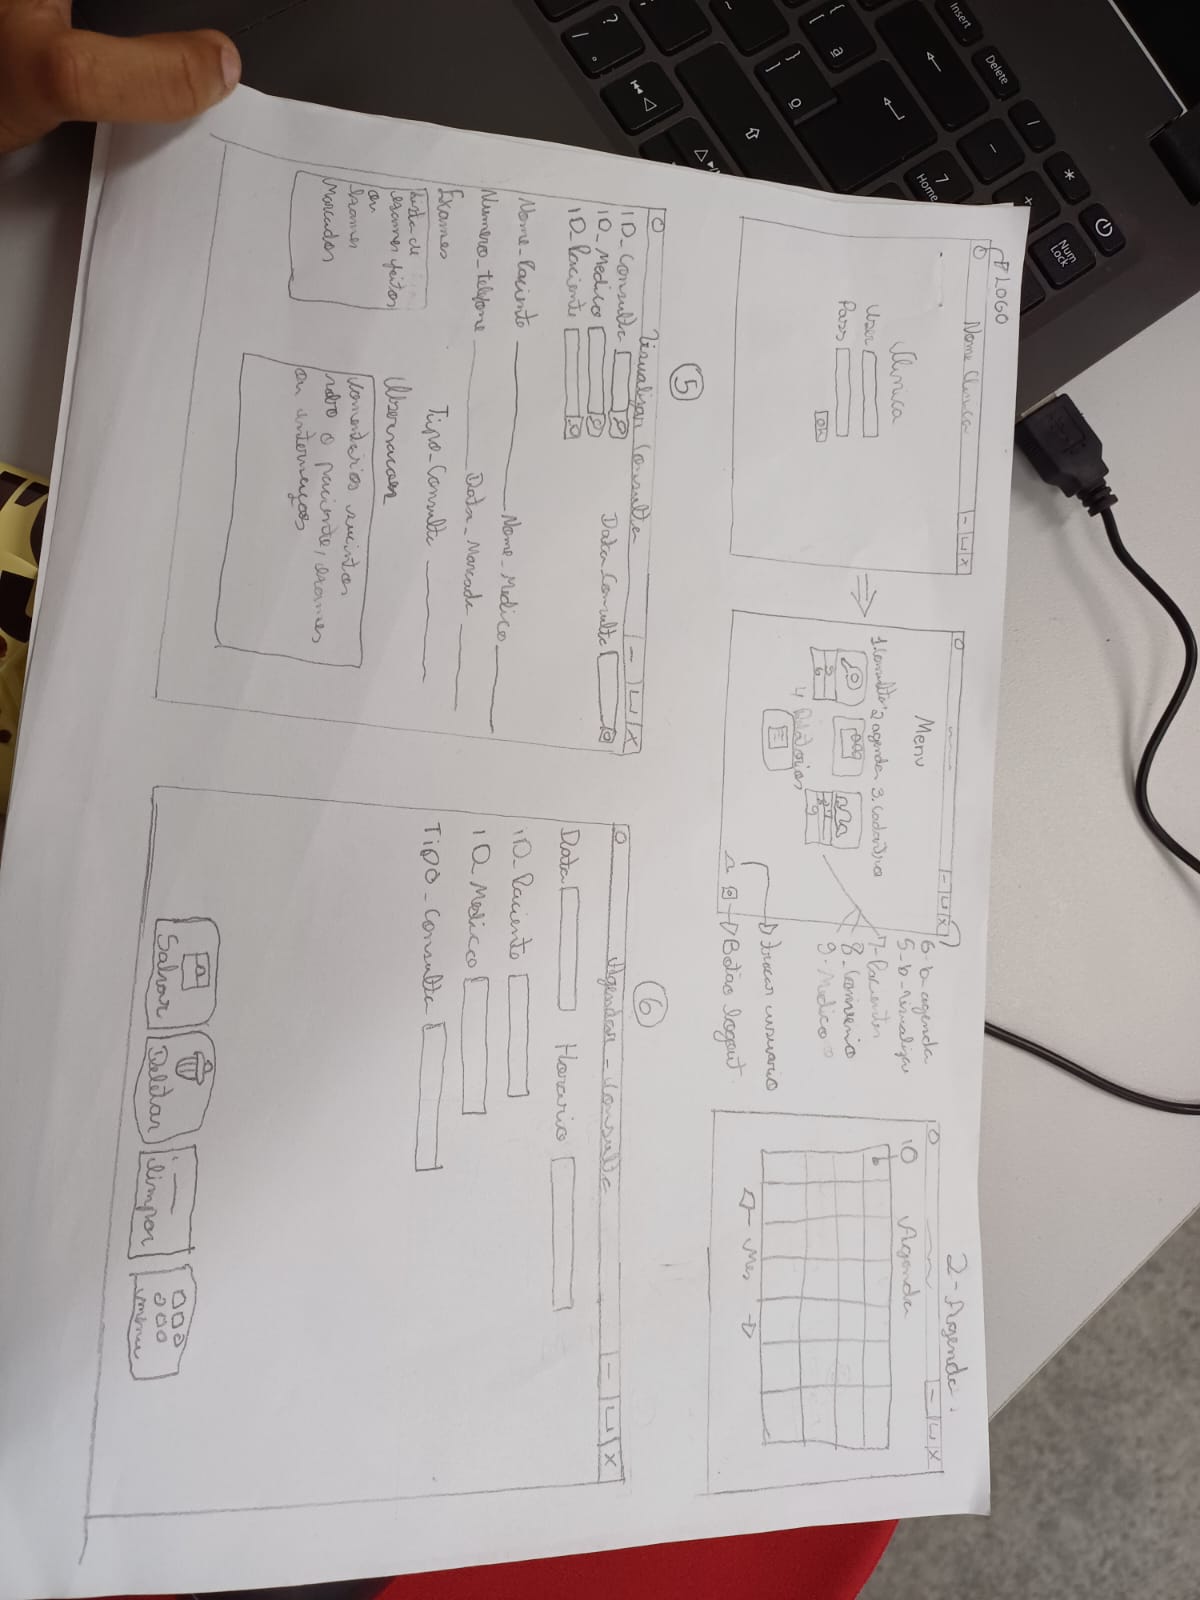 LOGO
Nome Clinica
- X
Clinica
User
Pass
OK
- X
Menu
1.Consulta 2 agenda 3. Cadastro
5
6
7
8
9
4 Relatorios
6-b-agenda
5-b-visualizar
7-Pacientes
8-Convenio
9-Medico
trocar usuario
Botão logout
2-Agenda:
- X
10
Agenda
6
Mes
5
Visualizar Consulta
- X
ID-Consulta
Data Consulta
ID-Medico
ID-Paciente
Nome-Paciente
Nome-Medico
Numero-telefone
Data-Marcada
Exames
Tipo-Consulta
Lista de
exames feitos
ou
exames
Marcados
Observacoes
Comentarios
sobre o paciente, exames
ou internações
6
Agendar-Consulta
- X
Data
Horario
ID-Paciente
ID Medico
Tipo-Consulta
Salvar
Deletar
limpar
menu
Insert
Delete
/
*
-
+
7
Home
Num
Lock
?
/
°
{
[
ª
}
]
º